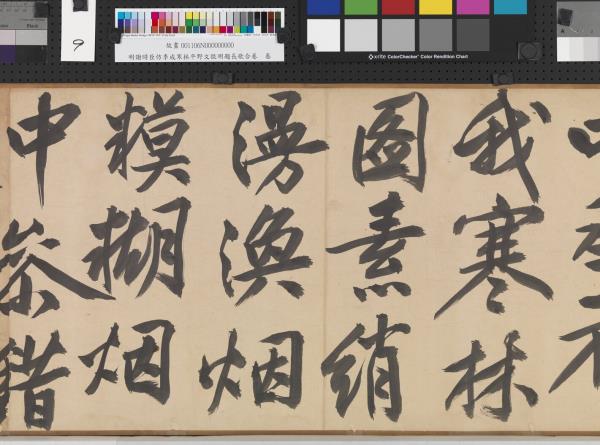 Black
9
故畫 001106N000000000
明謝時臣仿李成寒林平野文徵明題長歌合卷 卷
x-rite ColorChecker Color Rendition Chart
我寒林
圖素綃
漫渙烟
糢糊烟
中參錯